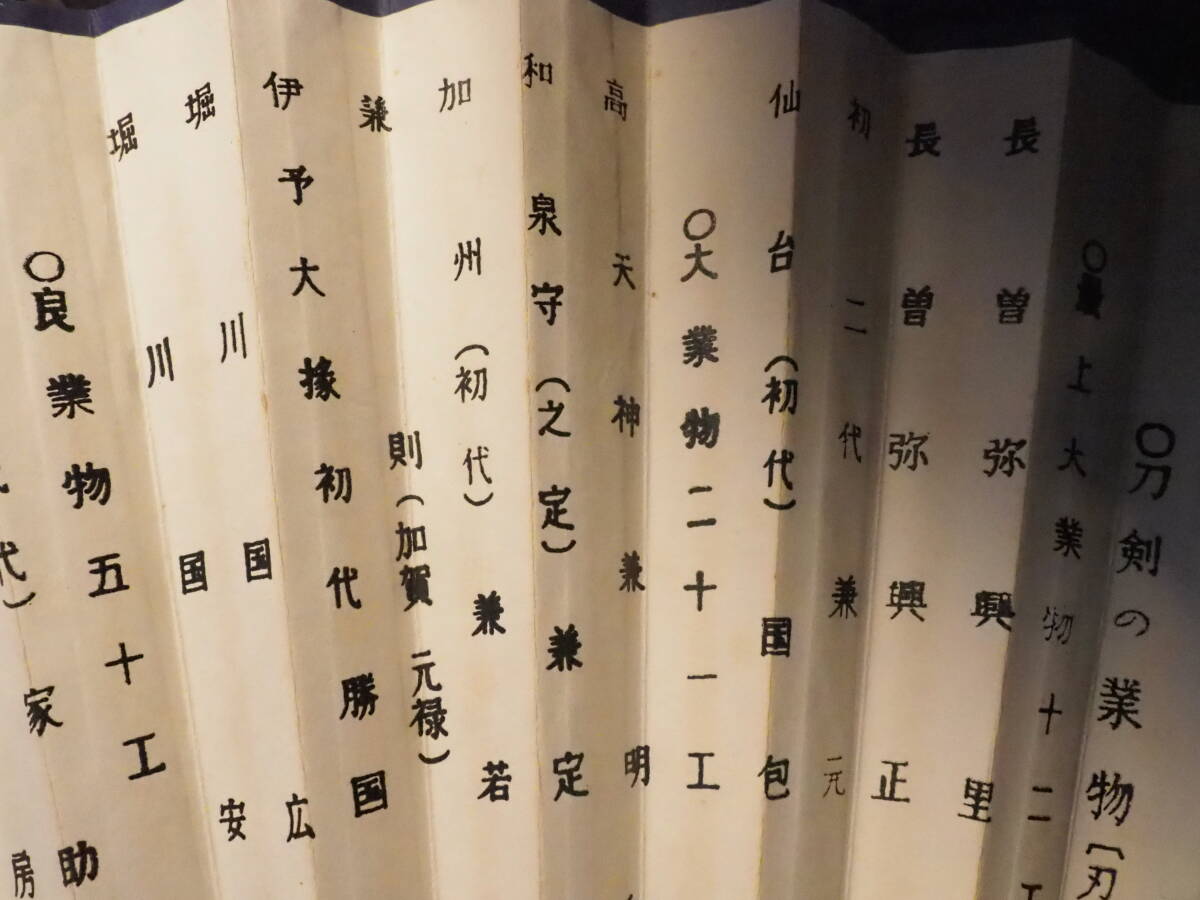 〇刀剣の業物〔刃
〇最上大業物十二工
長曽弥興里
長曽弥興正
初二代兼元
仙台（初代）国包
〇大業物二十一工
高天神兼明
和泉守（之定）兼定
加州（初代）兼若
兼則（加賀 元禄）
伊予大掾初代勝国
堀川国広
堀川国安
〇良業物五十工
助
代）家
房